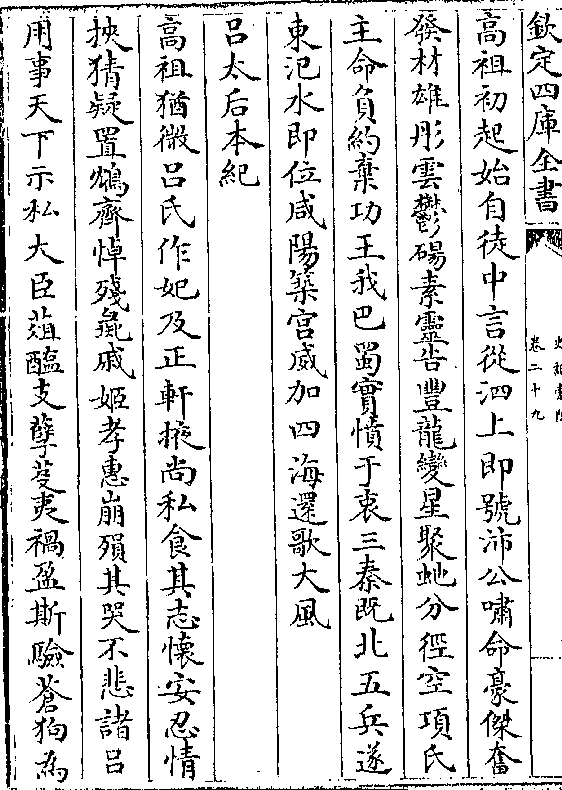 欽定四庫全書
史記索隱
卷二十九
高祖初起始自徒中言從泗上即號沛公嘯命豪傑奮
發材雄彤雲鬱碭素靈告豐龍變星聚虵分徑空項氏
主命負約棄功王我巴蜀實憤于衷三秦既北五兵遂
東汜水即位咸陽築宮威加四海還歌大風
呂太后本紀
高祖猶微呂氏作妃及正軒掖尚私食其志懷安忍情
挾猜疑置鴆齊悼殘彘戚姬孝惠崩殞其哭不悲諸呂
用事天下示私大臣葅醢支孽芟夷禍盈斯驗蒼狗為